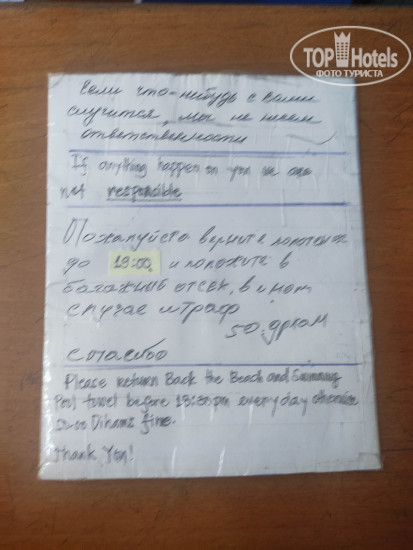 TOP Hotels
ФОТО ТУРИСТА
Если что-нибудь с вами
случится, мы не несем
ответственности
If anything happen on you we are
not responsible
Пожалуйста верните полотенце
до 19:00, и положите в
багажный отсек, в ином
случае штраф
50 дрхам
спасибо
Please return Back the Beach and Swimming
Pool towel before everyday otherwise
Dihams fine.
Thank You!